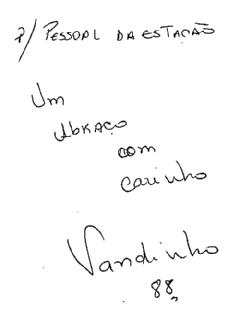 P/ PESSOAL DA ESTAÇÃO
Um
ABRAÇO
com
carinho
Vandinho
88